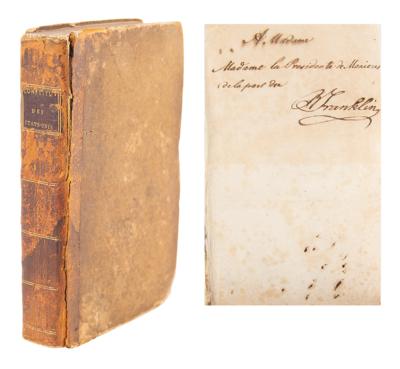 CONSTITUT
DES
ETATS-UNIS
A Madame
Madame la Presidente de Meinieres
de la part de
B Franklin